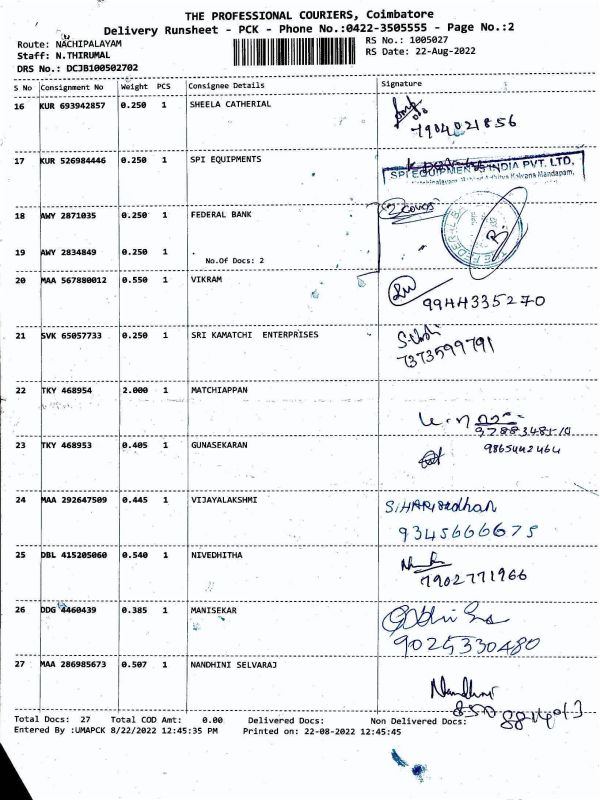 THE PROFESSIONAL COURIERS, Coimbatore
Delivery Runsheet - PCK - Phone No.:0422-3505555 - Page No.:2
Route: NACHIPALAYAM
RS No.: 1005027
Staff: N.THIRUMAL
RS Date: 22-Aug-2022
DRS No.: DCJB100502702
S No Consignment No Weight PCS Consignee Details Signature
16 KUR 693942857 0.250 1 SHEELA CATHERIAL
7904021856
17 KUR 526984446 0.250 1 SPI EQUIPMENTS
SPI EQUIPMENTS INDIA PVT. LTD.
Mandapam,
18 AWY 2871035 0.250 1 FEDERAL BANK
2 covers
19 AWY 2834849 0.250 1
No.Of Docs: 2
20 MAA 567880012 0.550 1 VIKRAM
9944335270
21 SVK 65057733 0.250 1 SRI KAMATCHI ENTERPRISES
7373599791
22 TKY 468954 2.000 1 MATCHIAPPAN
23 TKY 468953 0.405 1 GUNASEKARAN
9865442464
24 MAA 292647509 0.445 1 VIJAYALAKSHMI
9345666675
25 DBL 415205060 0.540 1 NIVEDHITHA
7902771966
26 DDG 4460439 0.385 1 MANISEKAR
9025330480
27 MAA 286985673 0.507 1 NANDHINI SELVARAJ
Nandhini
Total Docs: 27 Total COD Amt: 0.00 Delivered Docs: Non Delivered Docs:
Entered By :UMAPCK 8/22/2022 12:45:35 PM Printed on: 22-08-2022 12:45:45